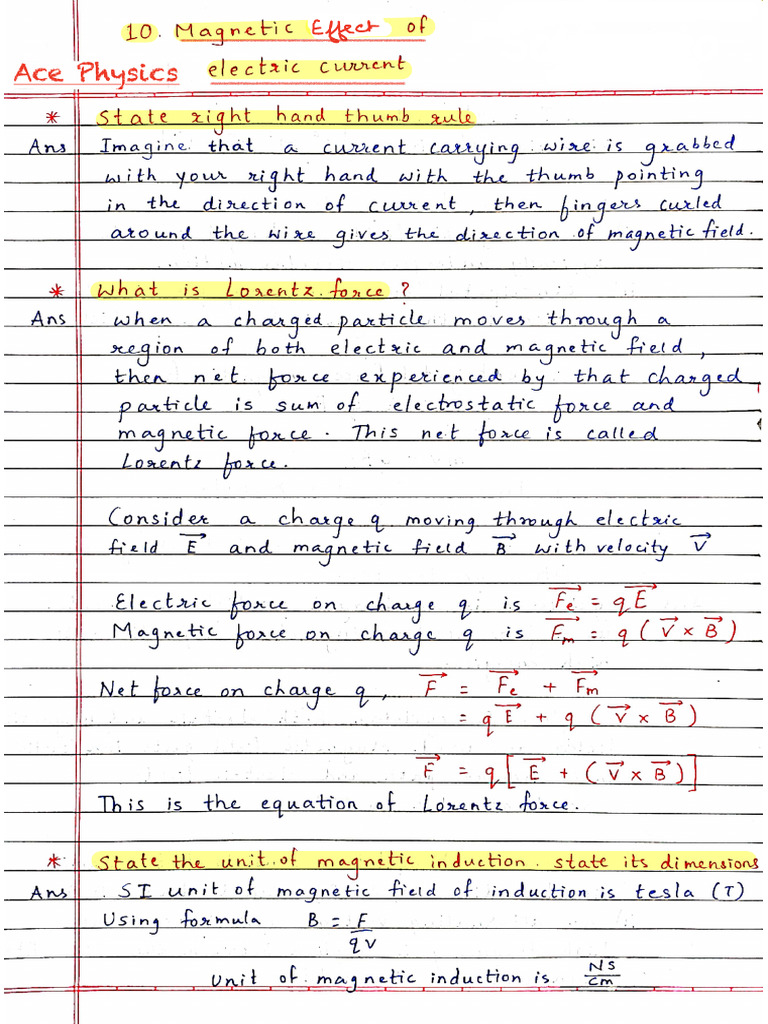 10. Magnetic Effect of
Ace Physics electric current
* State right hand thumb rule
Ans Imagine that a current carrying wire is grabbed
with your right hand with the thumb pointing
in the direction of current, then fingers curled
around the wire gives the direction of magnetic field.
* What is Lorentz force?
Ans When a charged particle moves through a
region of both electric and magnetic field,
then net force experienced by that charged
particle is sum of electrostatic force and
magnetic force. This net force is called
Lorentz force.
Consider a charge q moving through electric
field E⃗ and magnetic field B⃗ with velocity V⃗
Electric force on charge q is F⃗e = qE⃗
Magnetic force on charge q is F⃗m = q (V⃗ × B⃗)
Net force on charge q, F⃗ = F⃗e + F⃗m
= qE⃗ + q (V⃗ × B⃗)
F⃗ = q[E⃗ + (V⃗ × B⃗)]
This is the equation of Lorentz force.
* State the unit of magnetic induction. state its dimensions
Ans SI unit of magnetic field of induction is tesla (T)
Using formula B = F
qV
unit of magnetic induction is NS
Cm